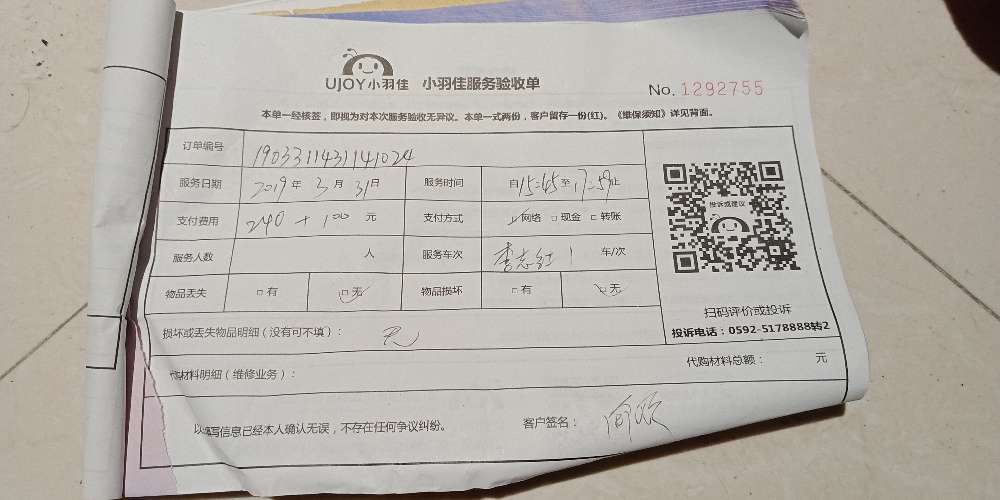 UJOY小羽佳 小羽佳服务验收单
No. 1292755
本单一经核签，即视为对本次服务验收无异议。本单一式两份，客户留存一份(红)。《维保须知》详见背面。
订单编号 1903311431141024
服务日期 2019年3月31日 服务时间 自15:45至17:59止
支付费用 240+100元 支付方式 网络 现金 转账
服务人数 人 服务车次 李志红 1 车/次
物品丢失 有 无 物品损坏 有 无
投诉或建议
扫码评价或投诉
投诉电话：0592-5178888转2
损坏或丢失物品明细（没有可不填）： 无
材料明细（维修业务）： 代购材料总额： 元
写信息已经本人确认无误，不存在任何争议纠纷。 客户签名：